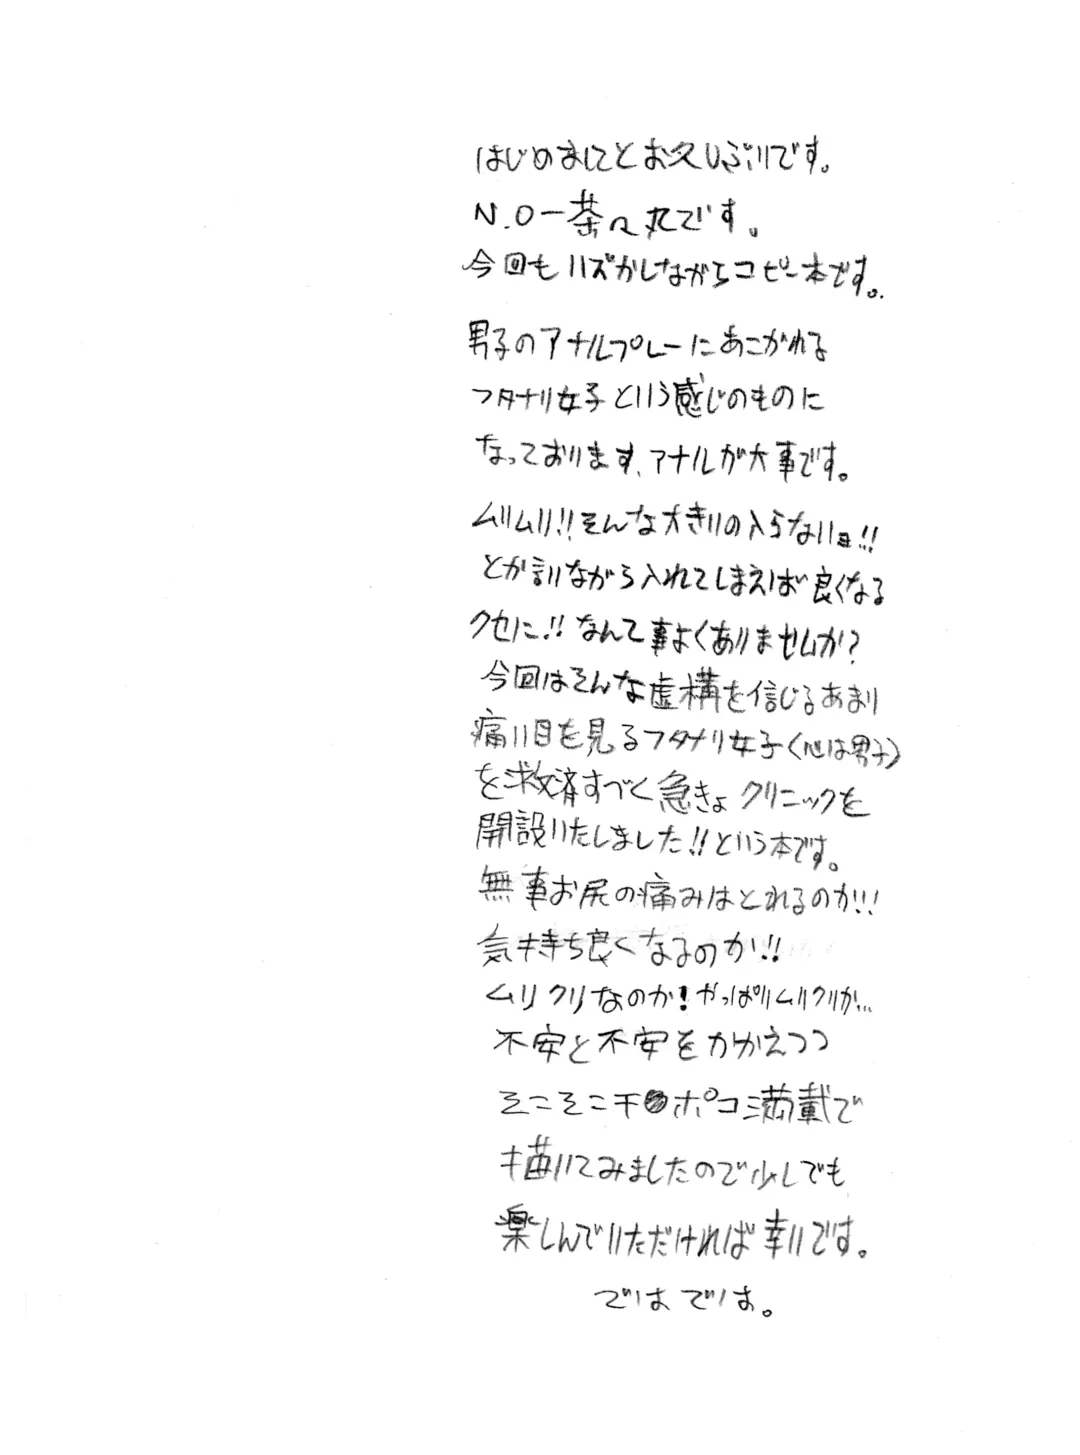 はじめましてとお久しぶりです。
N.O-茶々丸です。
今回もハズかしながらコピー本です。
男子のアナルプレーにあこがれる
フタナリ女子という感じのものに
なっております、アナルが大事です。
ムリムリ!!そんな大きいの入らない目!!
とか言いながら入れてしまえば良くなる
クセに!!なんて事よくありませんか?
今回はそんな虚構を信じるあまり
痛い目を見るフタナリ女子(心は男子)
を救済すべく急きょクリニックを
開設いたしました!!という本です。
無事お尻の痛みはとれるのか!!!
気持ち良くなるのか!!
ムリクリなのか!やっぱりムリクリか…
不安と不安をかかえつつ
そこそこチ●ポコ満載で
描いてみましたので少しでも
楽しんでいただければ幸いです。
ではでは。